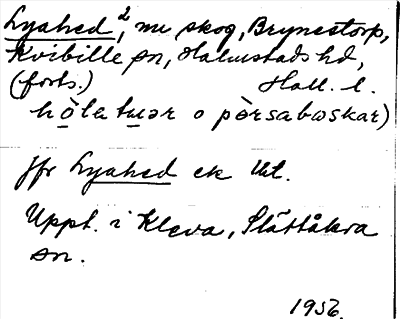 Lyahed², nu skog, Brynestorp,
Kvibille sn, Halmstads hd,
(forts.) Hall. l.
hòlatuər o pòrsabəskar)
Jfr Lyahed ek Ut.
Uppt. i Kleva, Slättåkra
sn.
1956.